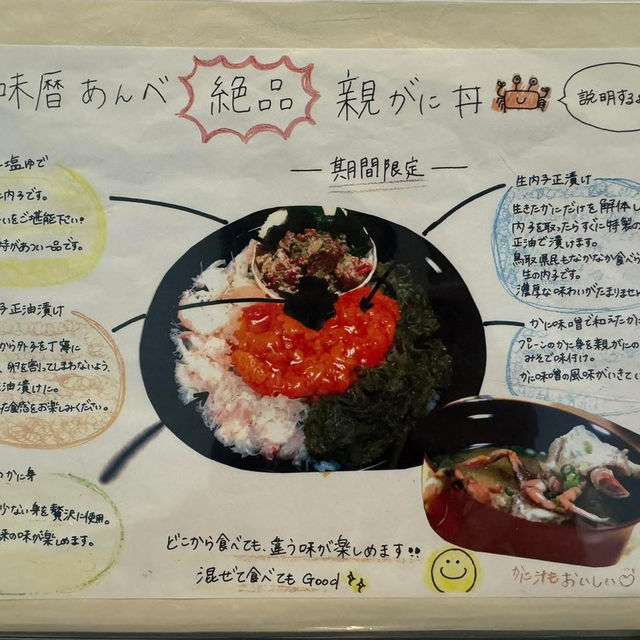 味暦あんべ 絶品 親がに丼
説明するよ
― 期間限定 ―
塩ゆで
内子です。
いをご堪能下さい?
特があつい一品です。
子正油漬け
から外子を丁寧に
、卵を割ってしまわないよう、
油漬けに。
た食感をお楽しみください。
のかに身
少ない身を贅沢に使用。
味の味が楽しめます。
生内子正漬け
生きたかにだけを解体し
内子を取ったらすぐに特製の
正油で漬けます。
鳥取県民もなかなか食べら
生の内子です。
濃厚な味わいがたまりません
かに味噌で和えたか
プレーンのかに身を親がにの
みそで味付け。
かに味噌の風味がいきてい
どこから食べても、違う味が楽しめます!!
混ぜて食べてもGood
かに汁もおいしい♡